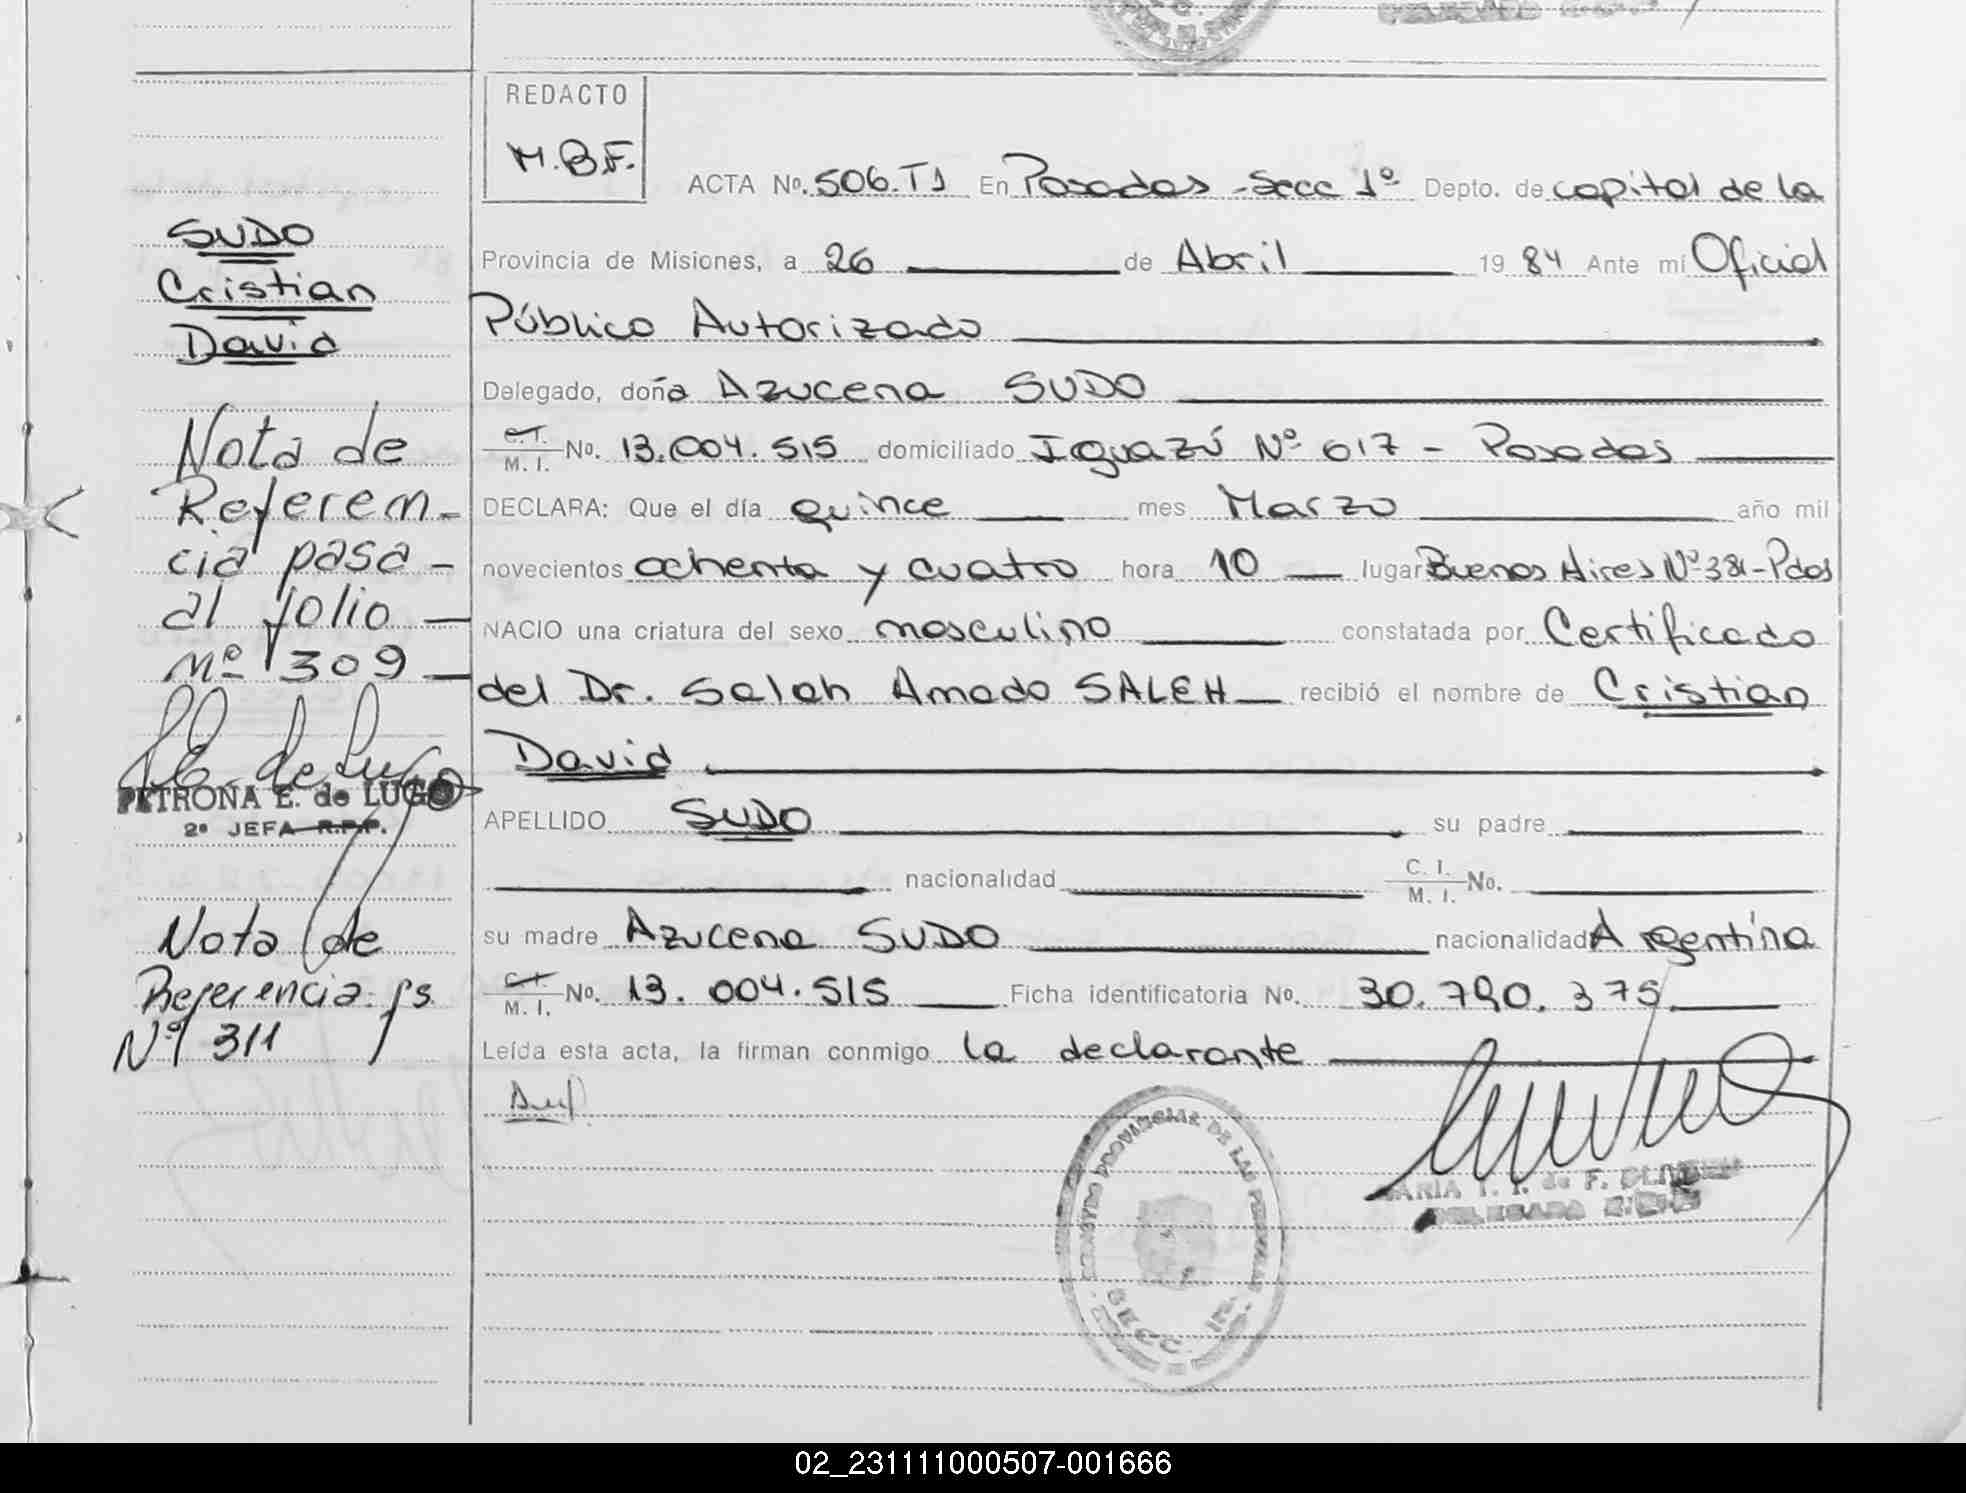 REDACTO
M.B.F.
ACTA No. 506.T1 En Posadas - Secc 1º Depto. de capital de la
Provincia de Misiones, a 26 de Abril 1984 Ante mí Oficial
Público Autorizado
Delegado, doña Azucena SUDO
C.I. M. I. No. 13.004.515 domiciliado Iguazú Nº 617 - Posadas
DECLARA: Que el día quince mes Marzo año mil
novecientos ochenta y cuatro hora 10 lugar Buenos Aires Nº 381-Pdas
NACIO una criatura del sexo masculino constatada por Certificado
del Dr. Salah Amado SALEH recibió el nombre de Cristian
David
APELLIDO SUDO su padre
nacionalidad C. I. M. I. No.
su madre Azucena SUDO nacionalidad Argentina
C.I. M. I. No. 13.004.515 Ficha identificatoria No. 30.790.375
Leída esta acta, la firman conmigo la declarante
SUDO
Cristian
David
Nota de
Referen-
cia pasa -
al folio
Nº 309
PETRONA E. de LUGO
2º JEFA R.P.P.
Nota de
Referencia fs
Nº 311
PROVINCIAL DE LAS PERSONAS
SECC. 1ra.
MARIA de F.
DELEGADA
02_231111000507-001666